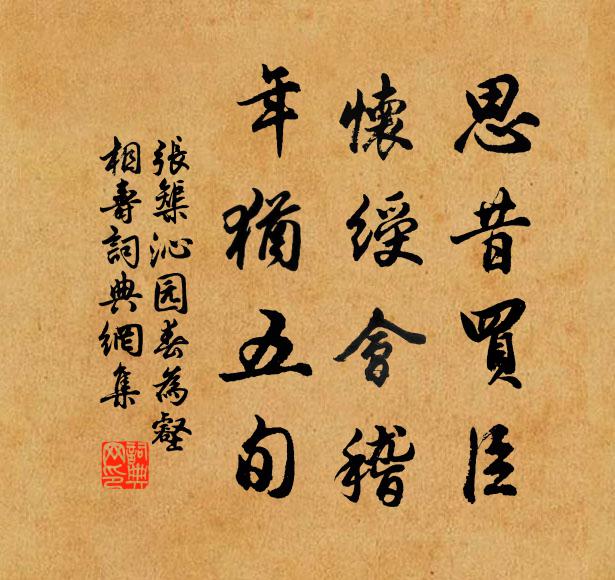 思昔買臣
懷綬會稽
年猶五旬
張榘沁园春為壑
相壽詞典網集
詞典
网印